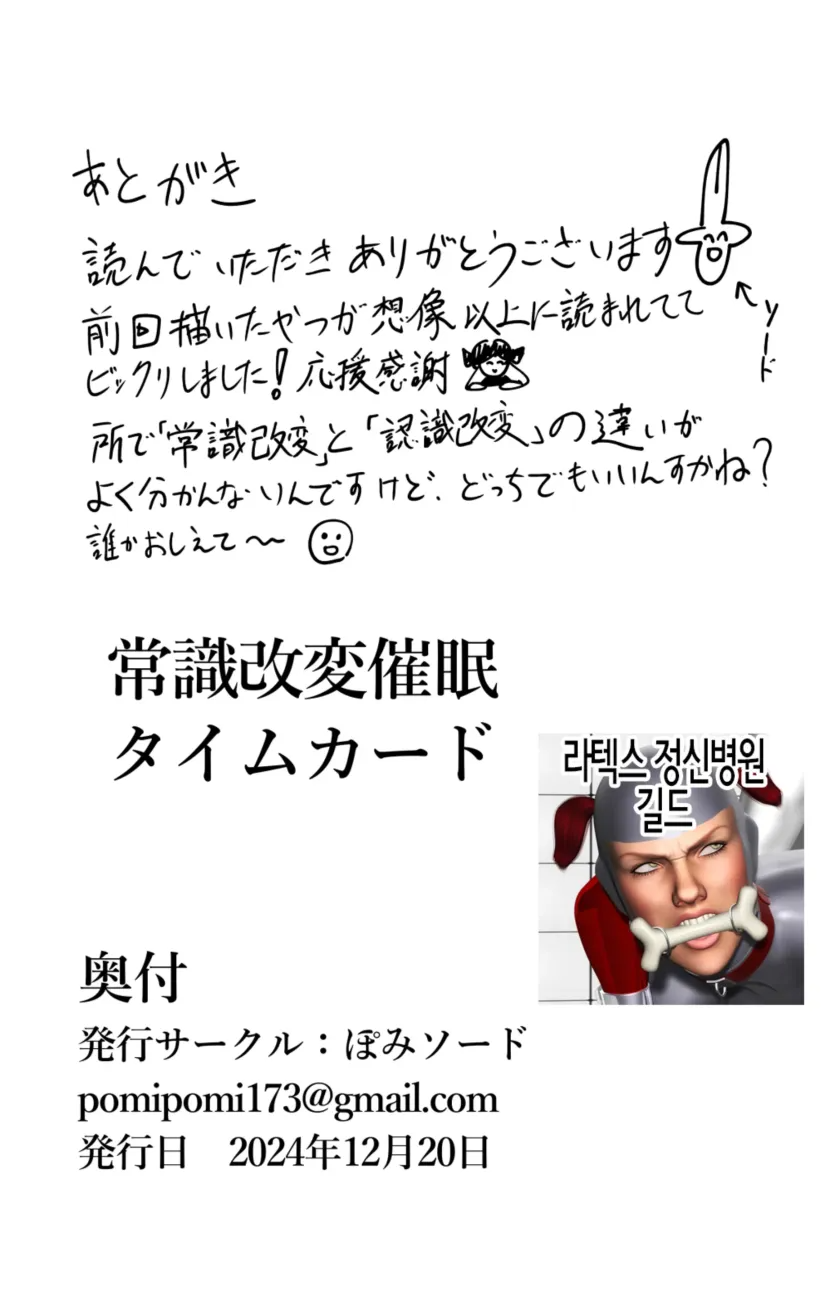 あとがき
読んでいただきありがとうございます
前回描いたやつが想像以上に読まれてて
ソード
ビックリしました!応援感謝
所で「常識改変」と「認識改変」の違いが
よく分かんないんですけど、どっちでもいいんすかね?
誰かおしえて〜
常識改変催眠
タイムカード
라텍스 정신병원
길드
奥付
発行サークル：ぽみソード
pomipomi173@gmail.com
発行日　2024年12月20日